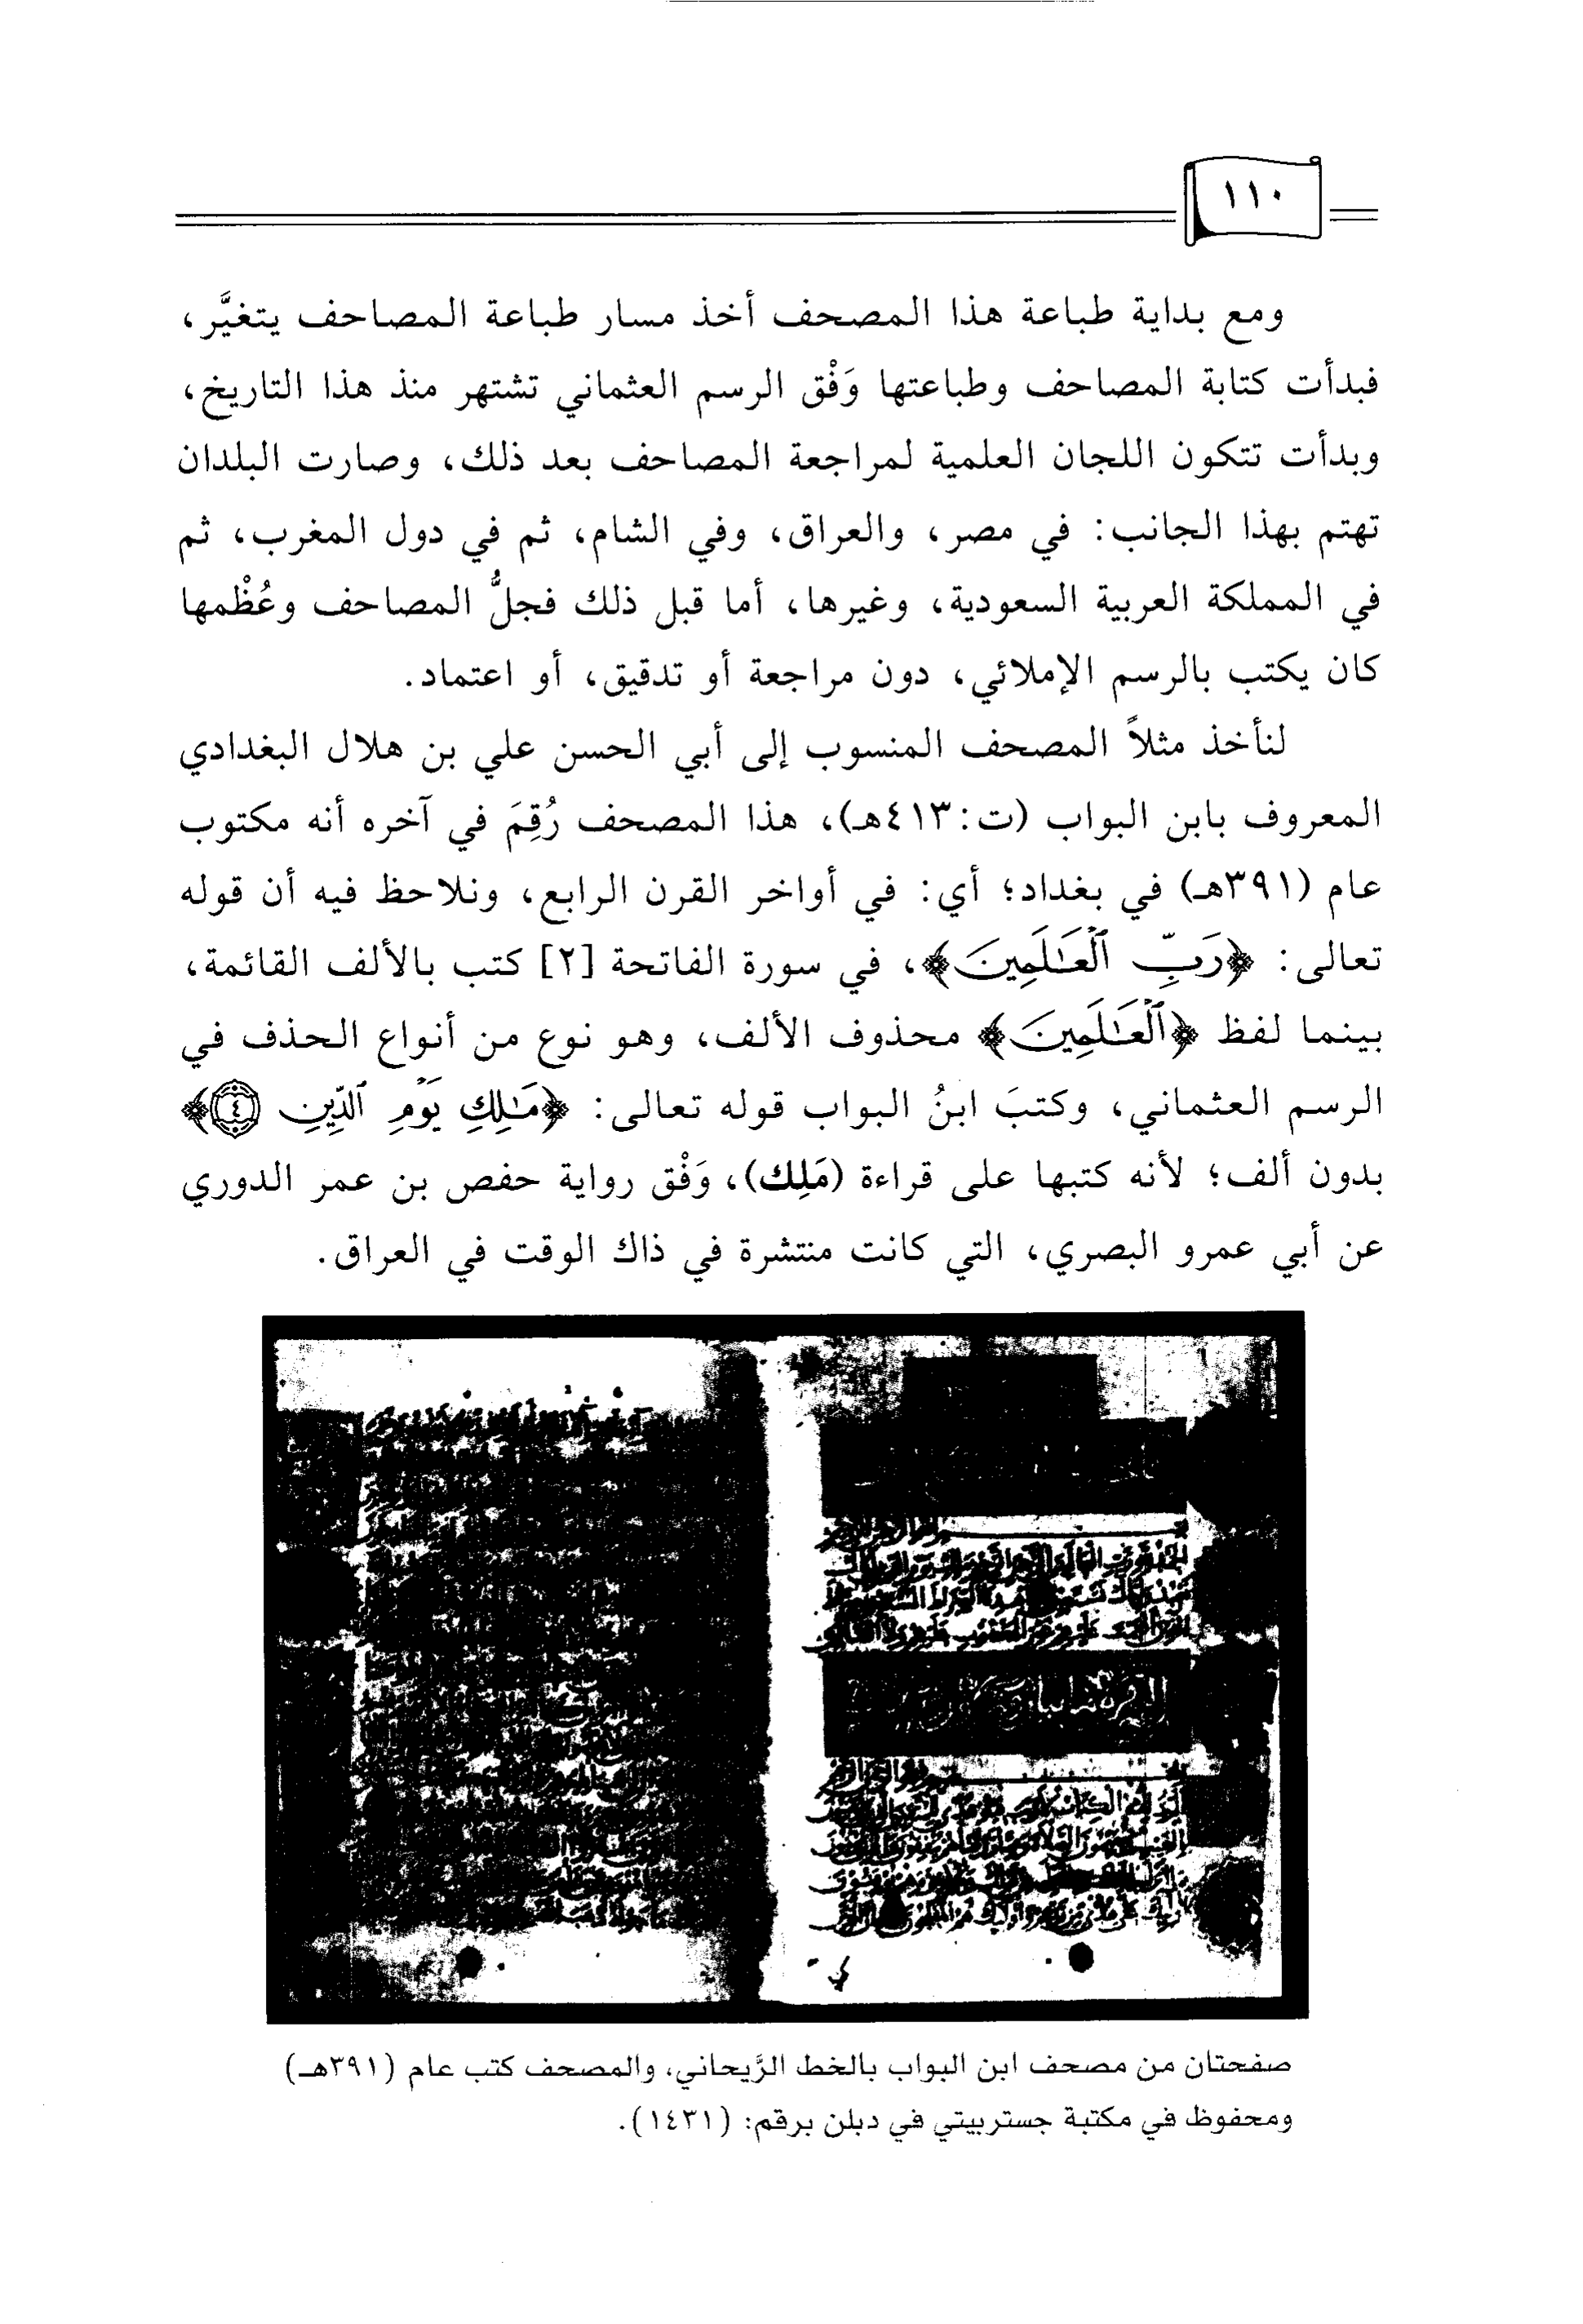 ١١٠
ومع بداية طباعة هذا المصحف أخذ مسار طباعة المصاحف يتغيَّر،
فبدأت كتابة المصاحف وطباعتها وَفْق الرسم العثماني تشتهر منذ هذا التاريخ،
وبدأت تتكون اللجان العلمية لمراجعة المصاحف بعد ذلك، وصارت البلدان
تهتم بهذا الجانب: في مصر، والعراق، وفي الشام، ثم في دول المغرب، ثم
في المملكة العربية السعودية، وغيرها، أما قبل ذلك فجلُّ المصاحف وعُظْمها
كان يكتب بالرسم الإملائي، دون مراجعة أو تدقيق، أو اعتماد.
لنأخذ مثلاً المصحف المنسوب إلى أبي الحسن علي بن هلال البغدادي
المعروف بابن البواب (ت:٤١٣هـ)، هذا المصحف رُقِمَ في آخره أنه مكتوب
عام (٣٩١هـ) في بغداد؛ أي: في أواخر القرن الرابع، ونلاحظ فيه أن قوله
تعالى: ﴿رَبِّ ٱلۡعَـٰلَمِينَ﴾، في سورة الفاتحة [٢] كتب بالألف القائمة،
بينما لفظ ﴿ٱلۡعَـٰلَمِينَ﴾ محذوف الألف، وهو نوع من أنواع الحذف في
الرسم العثماني، وكتبَ ابنُ البواب قوله تعالى: ﴿مَـٰلِكِ يَوۡمِ ٱلدِّينِ ٤﴾
بدون ألف؛ لأنه كتبها على قراءة (مَلِك)، وَفْق رواية حفص بن عمر الدوري
عن أبي عمرو البصري، التي كانت منتشرة في ذاك الوقت في العراق.
صفحتان من مصحف ابن البواب بالخط الرَّيحاني، والمصحف كتب عام (٣٩١هـ)
ومحفوظ في مكتبة جستربيتي في دبلن برقم: (١٤٣١).